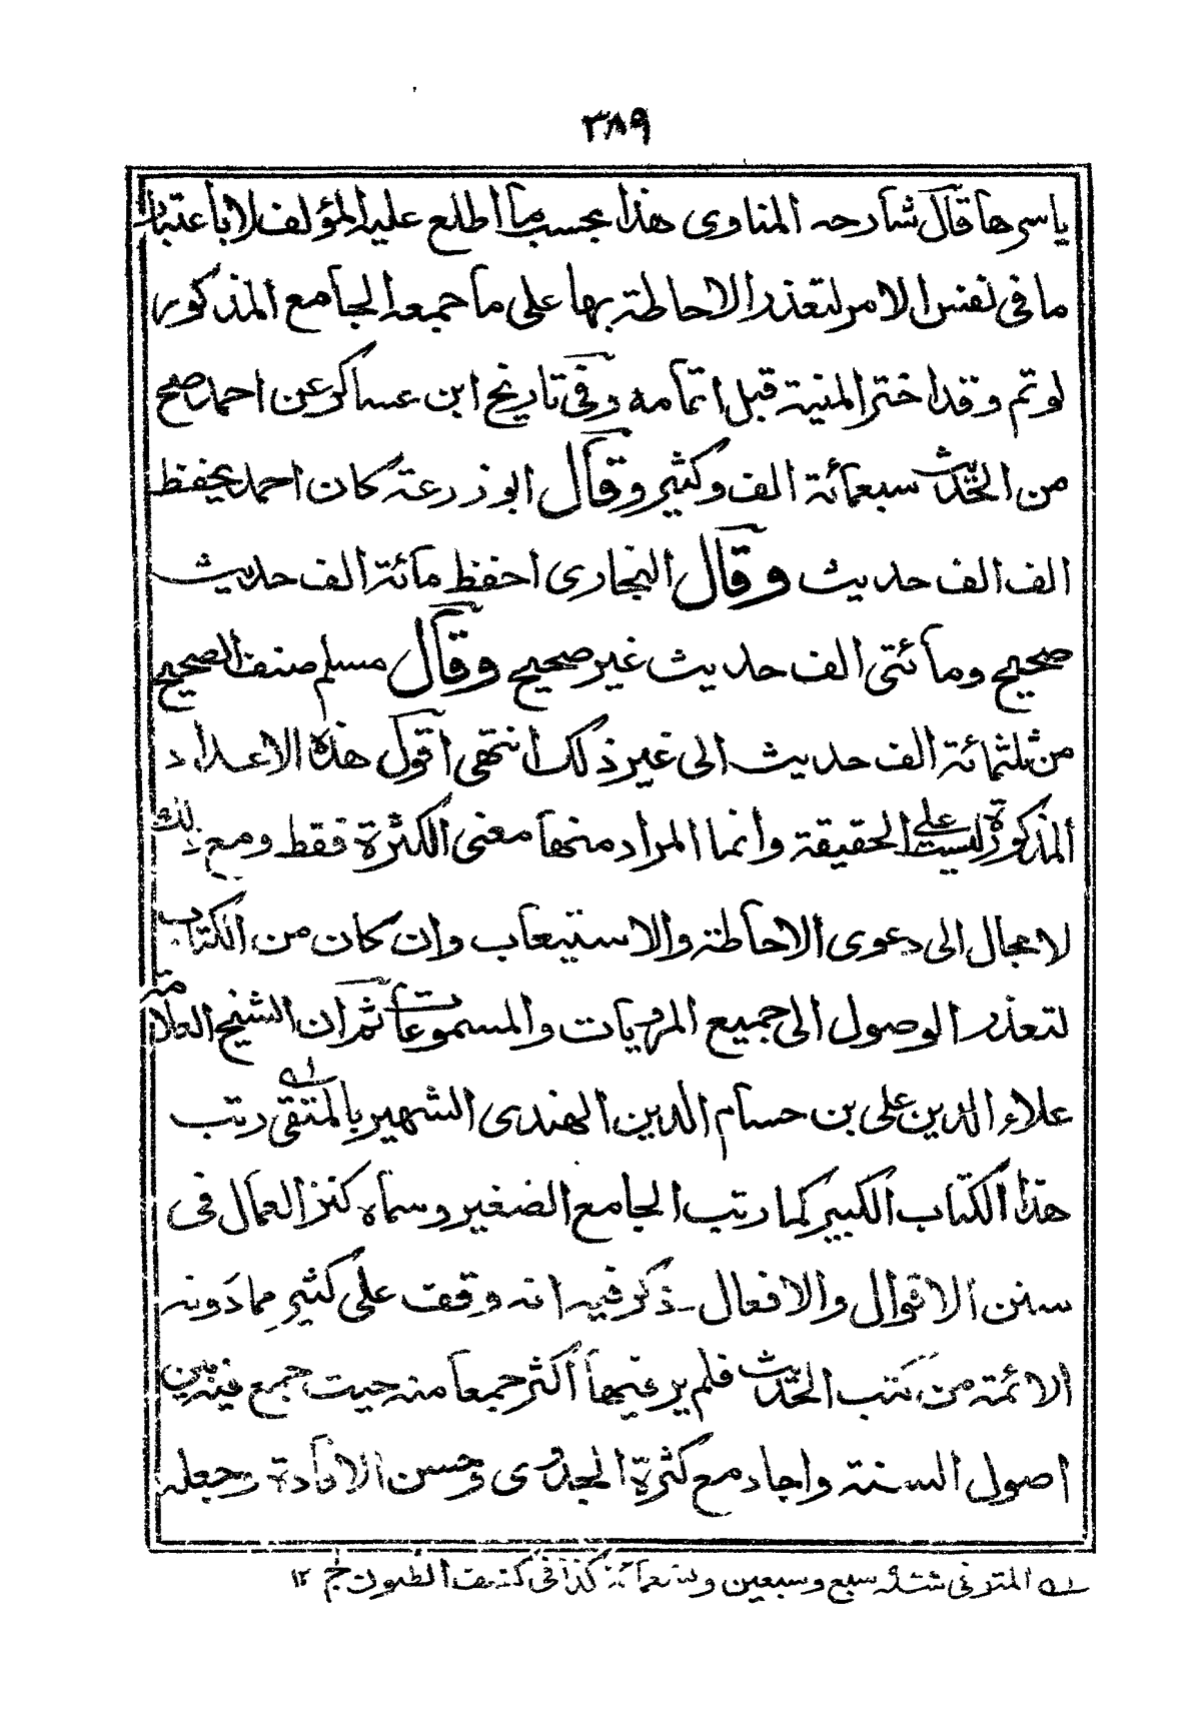 ٣٨٩
باسرها قال شارحه المناوى هذا بحسب ما اطلع عليه المؤلف لا باعتبار
ما فى نفس الامر لتعذر الاحاطة بها على ما جمعه الجامع المذكور
لو تم وقد اخترم المنية قبل اتمامه وفى تاريخ ابن عساكر عن احمد صح
من الحديث سبعمائة الف وكثير وقال ابو زرعة كان احمد يحفظ
الف الف حديث وقال البخارى احفظ مائة الف حديث
صحيح ومائتى الف حديث غير صحيح وقال مسلم صنفت الصحيح
من ثلثمائة الف حديث الى غير ذلك انتهى اقول هذه الاعداد
المذكورة ليست على الحقيقة وانما المراد منها معنى الكثرة فقط ومع ذلك
لا مجال الى دعوى الاحاطة والاستيعاب وان كان من الكتاب
لتعذر الوصول الى جميع المرويات والمسموعات ثم ان الشيخ العلامة
علاء الدين على بن حسام الدين الهندى الشهير بالمتقى له رتب
هذا الكتاب الكبير كما رتب الجامع الصغير وسماه كنز العمال فى
سنن الاقوال والافعال ـ ذكر فيه انه وقف على كثير مما دونه
الائمة من كتب الحديث فلم ير فيها اكثر جمعا منه حيث جمع فيه بين
اصول السنة واجاد مع كثرة الجدوى وحسن الافادة وجعله
له المتوفى سنة سبع وسبعين وتسعمائة كذا فى كشف الظنون ١٢